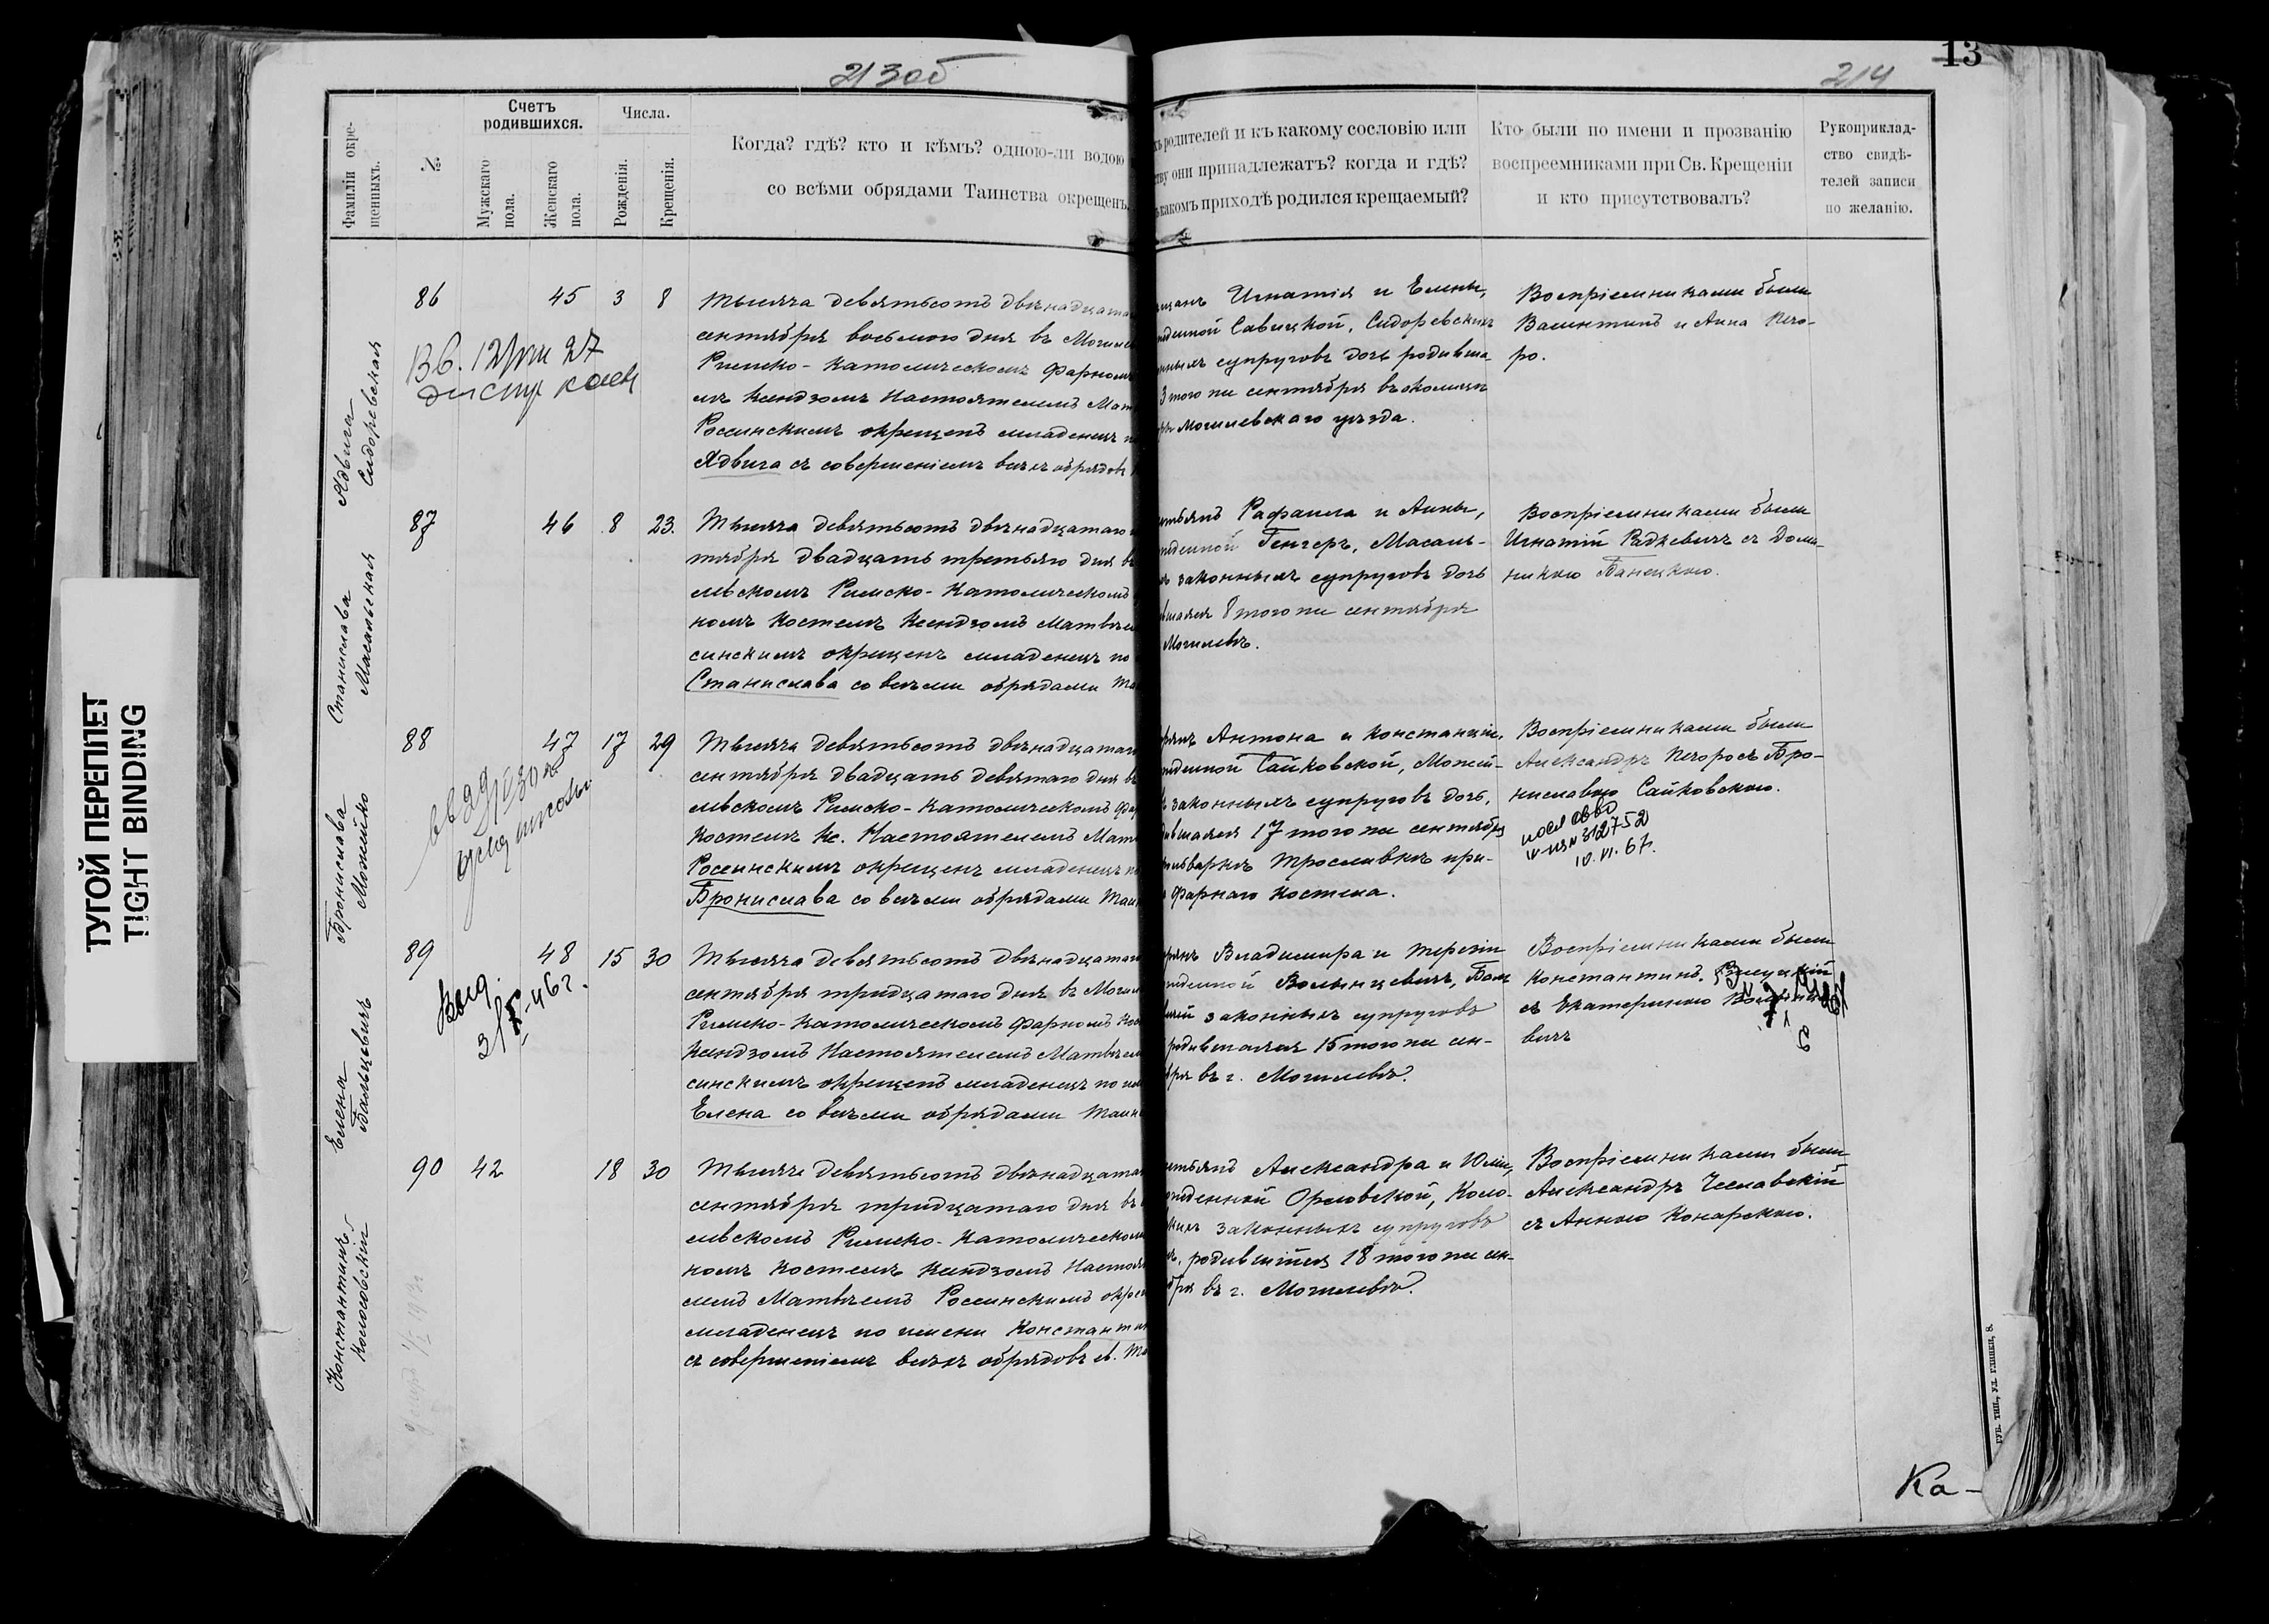 213об
214
13
ТУГОЙ ПЕРЕПЛЕТ
TIGHT BINDING
Фамиліи окре-
щенныхъ.
№
Счетъ
родившихся.
Мужскаго
пола.
Женскаго
пола.
Числа.
Рожденія.
Крещенія.
Когда? гдѣ? кто и кѣмъ? одною-ли водою
со всѣми обрядами Таинства окрещенъ
родителей и къ какому сословію или
они принадлежатъ? когда и гдѣ?
какомъ приходѣ родился крещаемый?
Кто были по имени и прозванію
воспреемниками при Св. Крещеніи
и кто присутствовалъ?
Рукоприклад-
ство свидѣ-
телей записи
по желанію.
Ядвига
Сидоревская
86 45 3 8
Тысяча девятьсотъ двѣнадцата
сентября восьмого дня въ Могиле
Римско-Католическомъ Фарномъ
мъ Ксендзомъ Настоятелемъ Мат
Россинскимъ окрещенъ младенецъ
Ядвига съ совершеніемъ всѣхъ обрядовъ
щанъ Игнатія и Елены,
жденной Савицкой, Сидоревскихъ
нныхъ супруговъ дочь родивша-
3 того же сентября въ околицѣ
Могилевскаго уѣзда.
Воспріемниками были
Валентинъ и Анна Печо-
ро.
Станислава
Масальская
87 46 8 23.
Тысяча девятьсотъ двѣнадцатаго
тября двадцать третьяго дня въ
левскомъ Римско-Католическомъ
номъ Костелѣ Ксендзомъ Матвѣе
синскимъ окрещенъ младенецъ по
Станислава со всѣми обрядами Та
стьянъ Рафаила и Анны,
жденной Генгеръ, Масаль-
ъ законныхъ супруговъ дочь
вшаяся 8 того же сентября
Могилевѣ.
Воспріемниками были
Игнатій Радкевичъ съ Доми-
никою Банецкою.
Бронислава
Можейко
88 47 17 29
Тысяча девятьсотъ двѣнадцатаго
сентября двадцать девятаго дня въ
левскомъ Римско-Католическомъ Фар
Костелѣ Кс. Настоятелемъ Матв
Россинскимъ окрещенъ младенецъ по
Бронислава со всѣми обрядами Таин
рянъ Антона и Констанціи,
жденной Сайковской, Можей-
ъ законныхъ супруговъ дочь,
дившаяся 17 того же сентября
львъаркѣ Трославкѣ при-
Фарнаго Костела.
Воспріемниками были
Александръ Печоро съ Бро-
ниславою Сайковскою.
312752
10.VI.67.
Елена
Бальцевичъ
89 48 15 30
Тысяча девятьсотъ двѣнадцатаго
сентября тридцатаго дня въ Могил
Римско-Католическомъ Фарномъ Кос
Ксендзомъ Настоятелемъ Матвѣем
синскимъ окрещенъ младенецъ по им
Елена со всѣми обрядами Таин
рянъ Владимира и Терезіи
жденной Волынцевичъ, Баль
вичей законныхъ супруговъ
родившаяся 15 того же сен-
бря въ г. Могилевѣ.
Воспріемниками были
Константинъ
съ Екатериною
вичъ
Константинъ
Колосовскій
90 42 18 30
Тысяча девятьсотъ двѣнадцата
сентября тридцатаго дня въ
левскомъ Римско-Католическом
номъ Костелѣ Ксендзомъ Настоят
лемъ Матвѣемъ Россинскимъ окре
младенецъ по имени Константин
съ совершеніемъ всѣхъ обрядовъ св. Та
стьянъ Александра и Юліи,
жденной Орловской, Коло-
кихъ законныхъ супруговъ
ъ, родившійся 18 того же сен-
бря въ г. Могилевѣ.
Воспріемниками были
Александръ Чеславскій
съ Анною Конарскою.
Ка-